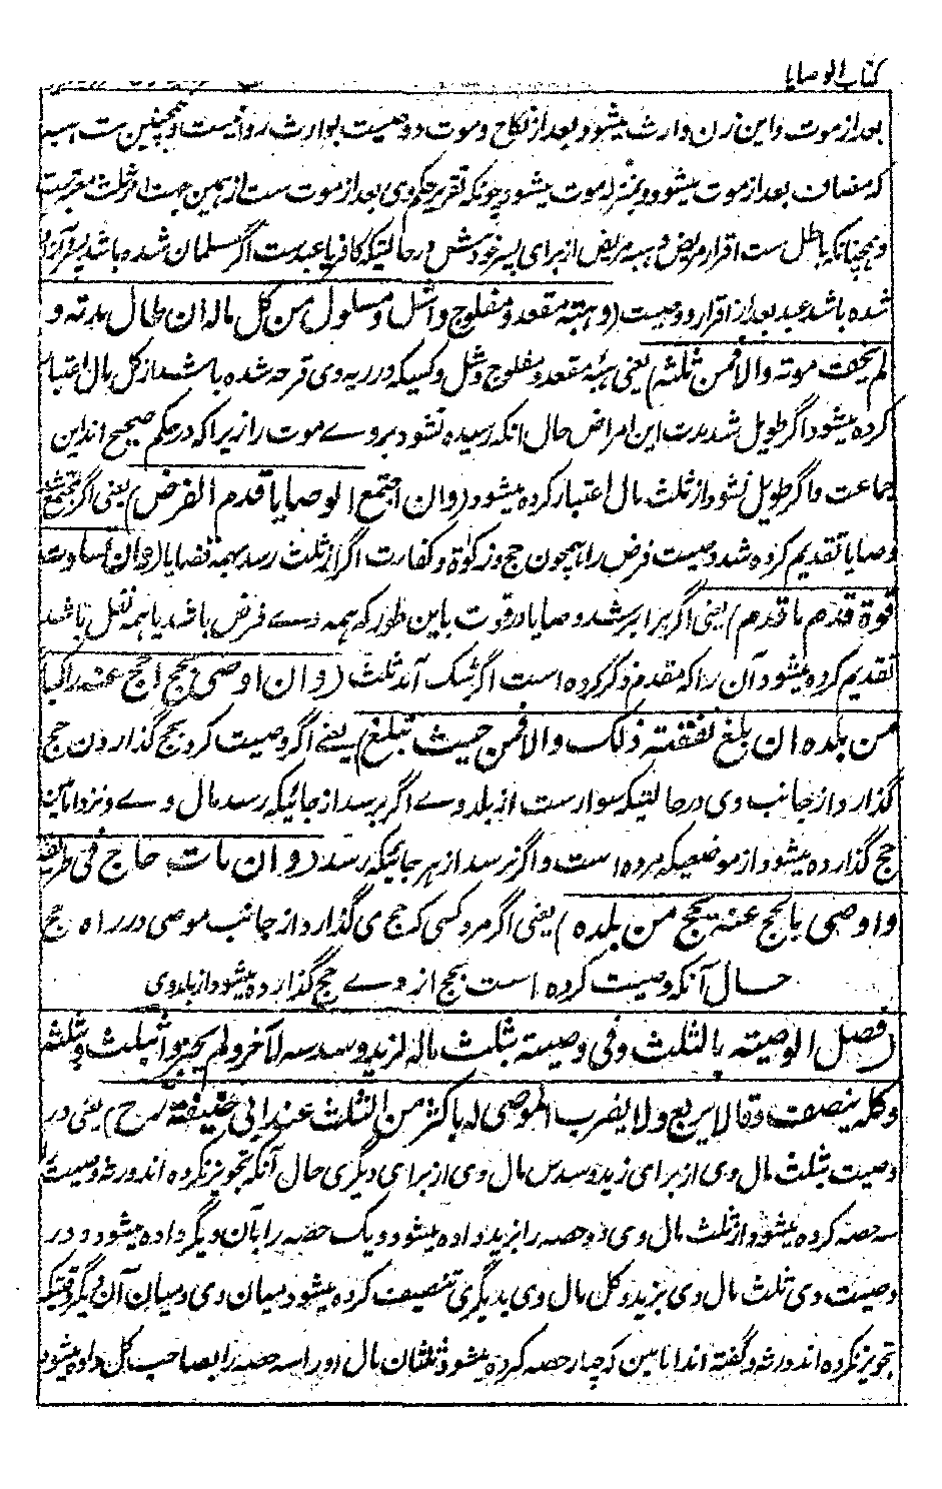 کتاب الوصایا
بعد از موت و این زن وارث میشود بعد از نکاح و موت و وصیت بوارث روا نیست و همچنین ست هبه
که مضاف بعد از موت میشود و بمنزله موت میشود چونکه تقریر حکم وی بعد از موت ست از همین جهت از ثلث معتبرست
و همچنانکه باطل ست اقرار مریض و هبه مریض از برای پسر خودش در حالتیکه کافر یا عبدست اگر مسلمان شده باشد پسر یا آزاد
شده باشد عبد بعد از اقرار و وصیت (و هبته مقعد و مفلوج و اشل و مسلول من کل ماله ان طال مدته و
لم یخف موته والا فمن ثلثه) یعنی هبهٔ مقعد و مفلوج و شل و کسیکه در ریه وی قرحه شده باشد از کل مال اعتبار
کرده میشود اگر طویل شد مدت این امراض حال انکه رسیده نشود بروے موت را زیرا که در حکم صحیح اند این
جماعت و اگر طویل نشود از ثلث مال اعتبار کرده میشود (وان اجتمع الوصایا قدم الفرض) یعنی اگر مجتمع شد
وصایا تقدیم کرده شد وصیت فرض را همچون حج و زکوٰة و کفارت اگر از ثلث رسد بهمه قضایا (وان تساوت
قوة قدم ما قدم) یعنی اگر برابر شد وصایا در قوت باین طور که همه وے فرض باشد یا همه نفل باشد
تقدیم کرده میشود آن را که مقدم ذکر کرده است اگر تنگ آند ثلث (وان اوصی بحج احج عنه راکبا
من بلده ان بلغ نفقته ذلک والا فمن حیث تبلغ) یعنے اگر وصیت کرد بحج گذاردن حج
گذارد از جانب وی در حالتیکه سوارست از بلد وے اگر برسد از جائیکه رسد مال وے و نزد امامین
حج گذارده میشود از موضعیکه مرده است و اگر نرسد از هر جائیکه رسد (وان مات حاج فی طریقه
و اوصی بالحج عنه یحج من بلده) یعنی اگر مرد کسی که حج می گذارد از جانب موصی در راه حج
حال آنکه وصیت کرده است بحج از وے حج گذارده میشود از بلد وی
(فصل الوصیته بالثلث و فی وصیته بثلث ماله لزید و سدسه لآخر و لم یجیزوا بثلث و بثلثه
و کله ینصف و قالا یربع و لا یضرب الموصی له باکثر من الثلث عند ابی حنیفة رح) یعنی در
وصیت بثلث مال وی از برای زید و سدس مال وی از برای دیگری حال آنکه تجویز نکرده اند ورثه وصیت را
سه حصه کرده میشود از ثلث مال وی دو حصه را بزید داده میشود و یک حصه را بآن دیگر داده میشود و در
وصیت وی ثلث مال وی بزید و کل مال وی بدیگری تنصیف کرده میشود میان وی و میان آن دیگر وقتیکه
تجویز نکرده اند ورثه و گفته اند امامین که چهار حصه کرده میشود ثلثان مال او را سه حصه را بصاحب کل داده میشود